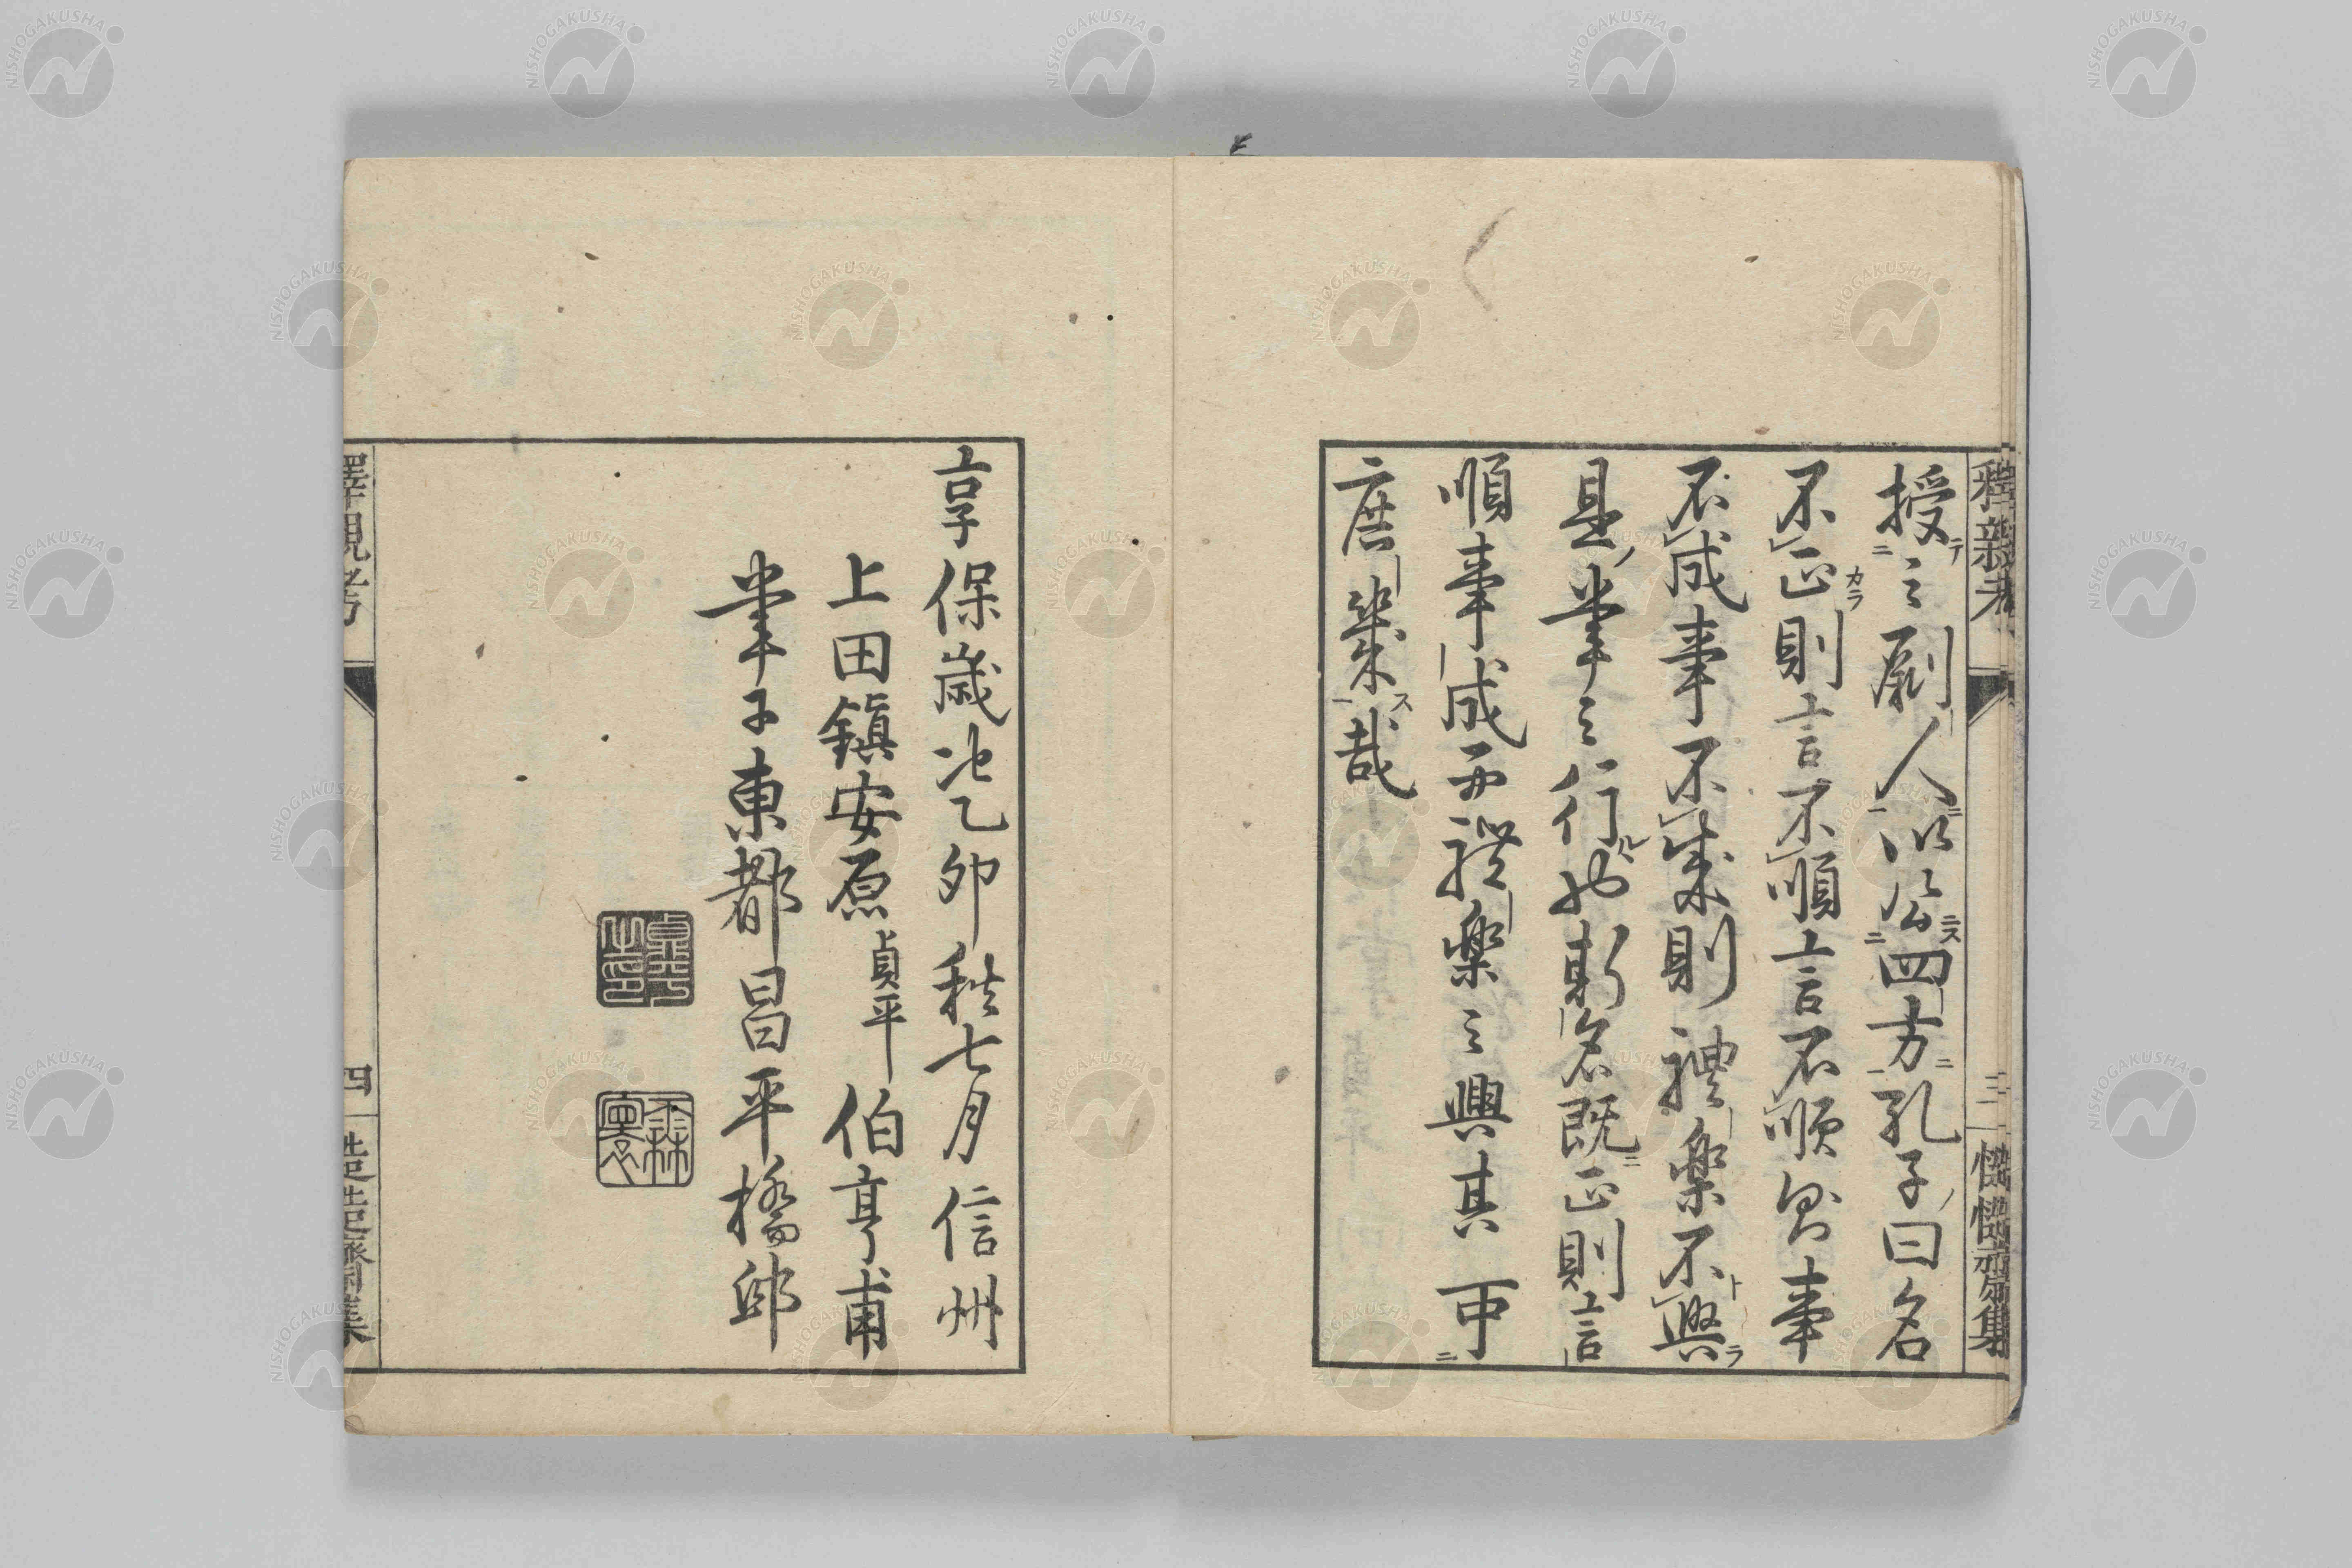 釋親考 三 慥慥齋集
授之劂人以公四方孔子曰名
不正則言不順言不順則事
不成事不成則禮樂不興
是筆之行也斯名既正則言
順事成而禮樂之興其可
庶幾哉
享保歲次乙卯秋七月信州
上田鎮安原貞平伯亨甫
筆于東都昌平橋邸
貞平之印
釋親考 四 慥慥齋集
NISHOGAKUSHA